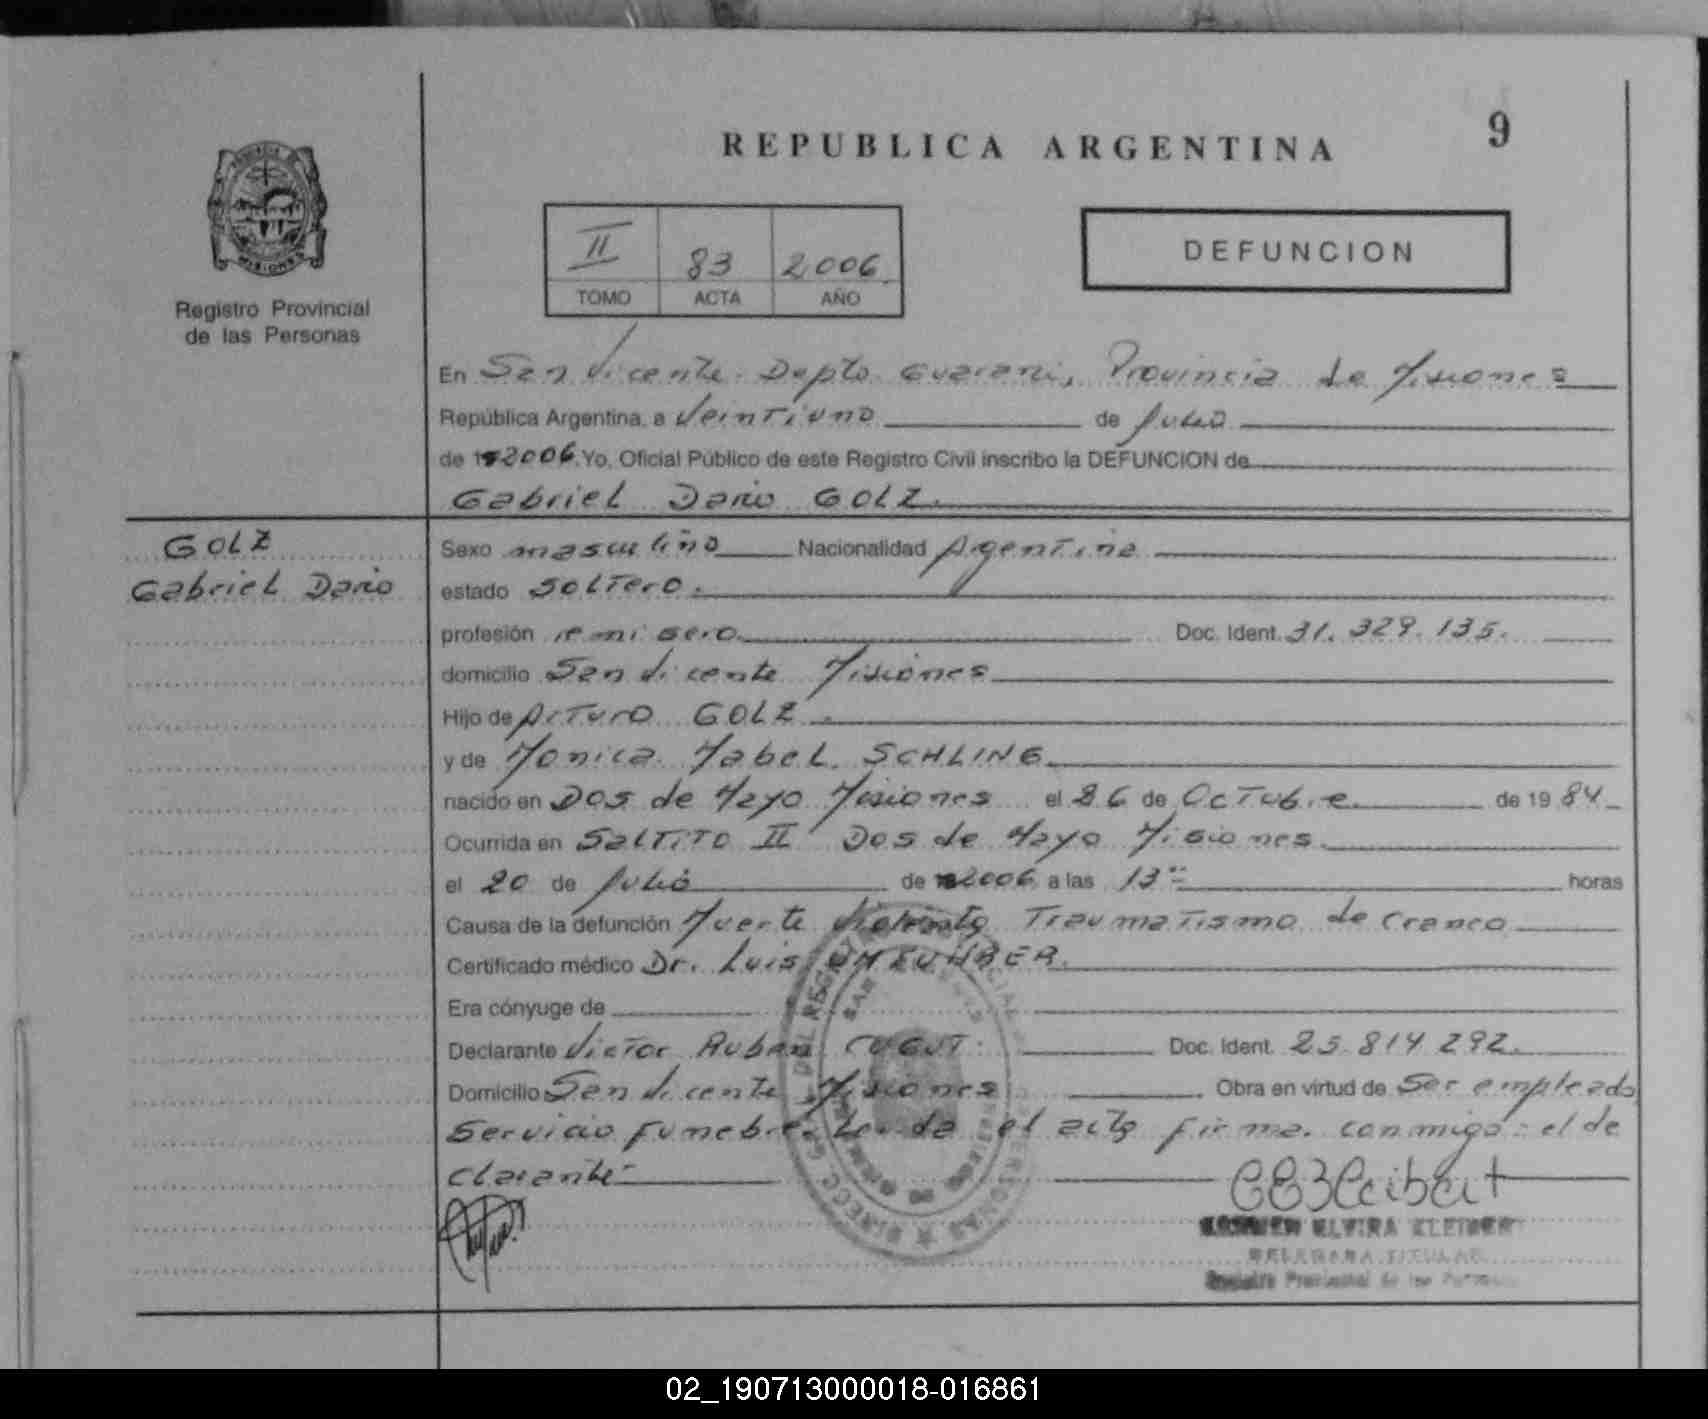 9
REPUBLICA ARGENTINA
PROVINCIA DE
MISIONES
Registro Provincial
de las Personas
II 83 2006
TOMO ACTA AÑO
DEFUNCION
En San Vicente Depto Guarani, Provincia de Misiones
República Argentina, a veintiuno de Julio
de 192006. Yo, Oficial Público de este Registro Civil inscribo la DEFUNCION de
Gabriel Dario GOLZ.
GOLZ
Gabriel Dario
Sexo masculino Nacionalidad Argentina
estado Soltero.
profesión remisero Doc. Ident. 31.329.135.
domicilio San Vicente Misiones
Hijo de Arturo GOLZ.
y de Monica Mabel SCHLING
nacido en Dos de Mayo Misiones el 26 de Octubre de 1984
Ocurrida en Saltito II Dos de Mayo Misiones.
el 20 de Julio de 2006 a las 13 horas
Causa de la defunción Muerte violenta Traumatismo de craneo
Certificado médico Dr. Luis
Era cónyuge de
Declarante Victor Ruben CUGUT. Doc. Ident. 25.814.292.
Domicilio San Vicente Misiones. Obra en virtud de Ser empleado
Servicio funebre. Leida el acta firma. conmigo: el de
clarante
ELVIRA
DELEGADA TITULAR
Registro Provincial de las Personas
02_190713000018-016861